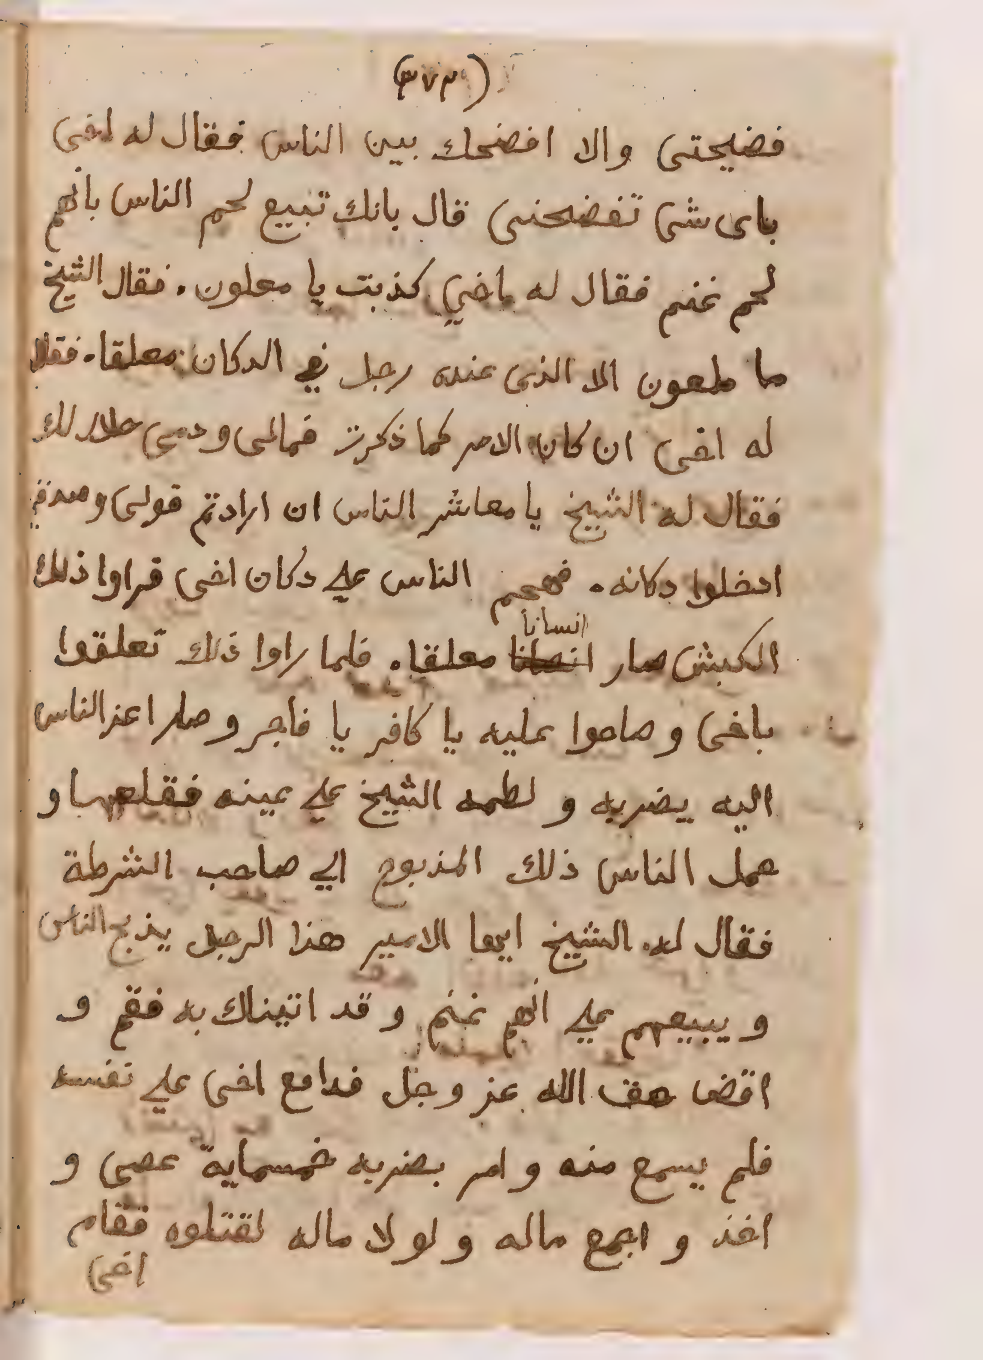 (٣٧٣)
فضيحتى والا افضحك بين الناس فقال له اخى
باى شى تفضحنى قال بانك تبيع لحم الناس بانهم
لحم غنم فقال له اخي كذبت يا معلون. فقال الشيخ
ما ملعون الا الذى عنده رجل في الدكان معلقا. فقال
له اخى ان كان الامر كما ذكرت فمالى ودمى حلال لك
فقال له الشيخ يا معاشر الناس ان ارادتم قولى وصدقي
ادخلوا دكانه. فهجم الناس على دكان اخى فراوا ذلك
الكبش صار انسانا معلقا. فلما راوا ذلك تعلقوا
باخى وصاحوا عليه يا كافر يا فاجر وصار اعز الناس
اليه يضربه و لطمه الشيخ على عينه فقلعها و
حمل الناس ذلك المذبوح الي صاحب الشرطة
فقال له الشيخ ايها الامير هذا الرجل يذبح الناس
و يبيعهم على انهم غنم و قد اتيناك به فقم و
اقض حق الله عز وجل فدافع اخى على نفسه
فلم يسمع منه و امر بضربه خمسماية عصى و
اخذ و اجمع ماله و لولا ماله لقتلوه فقام
اخى